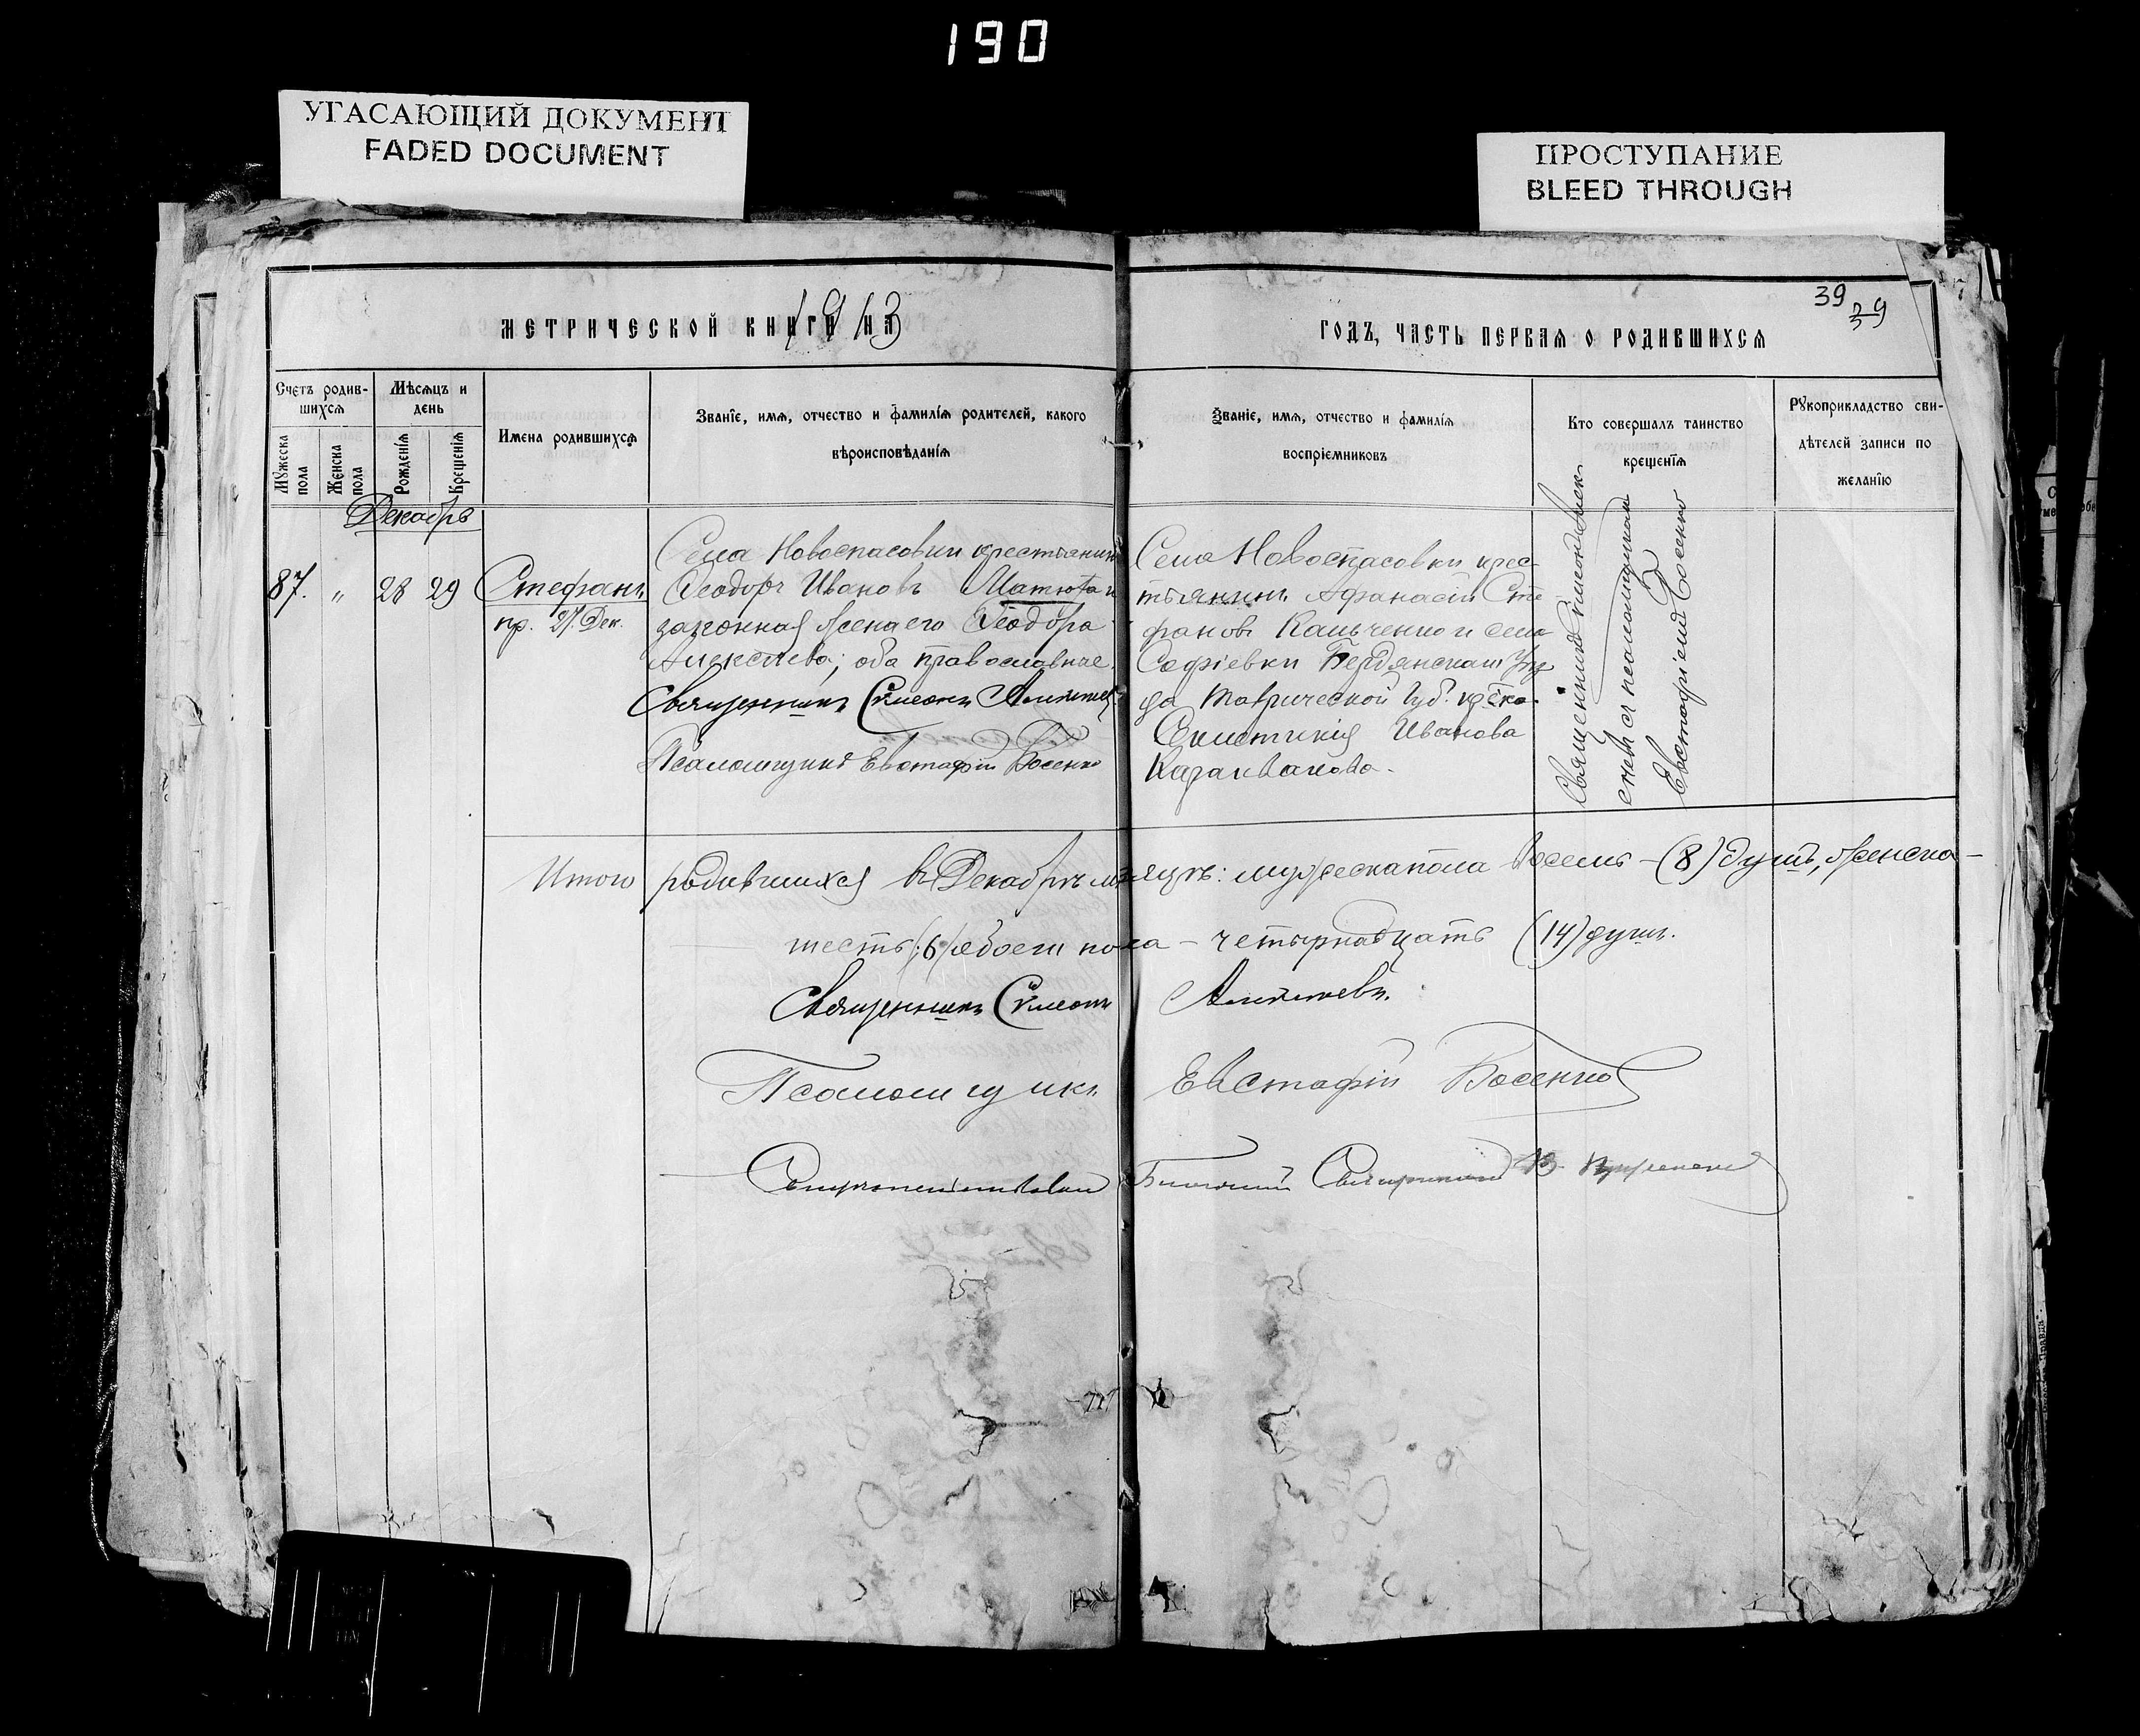 190
УГАСАЮЩИЙ ДОКУМЕНТ
FADED DOCUMENT
ПРОСТУПАНИЕ
BLEED THROUGH
39
39
МЕТРИЧЕСКОЙ КНИГИ НА 1913
ГОДЪ, ЧАСТЬ ПЕРВАЯ О РОДИВШИХСЯ
Счетъ родив-
шихся
Мѣсяцъ и
день
Мужеска
пола
Женска
пола
Рожденія
Крещенія
Имена родившихся
Званіе, имя, отчество и фамилія родителей, какого
вѣроисповѣданія
Званіе, имя, отчество и фамилія
воспріемниковъ
Кто совершалъ таинство
крещенія
Рукоприкладство сви-
дѣтелей записи по
желанію
Декабрь
87. " 28 29
Стефанъ
пр. 27. Дек.
Села Новоспасовки крестьянинъ
Ѳеодоръ Ивановъ Матюта и
законная жена его Ѳеодора
Алексѣева; оба православные.
Священникъ Сѵмеонъ
Псаломщикъ Евстафій Босенко
Села Новоспасовки крес-
тьянинъ Афанасій Сте
фановъ Кальченко и села
Софіевки Бердянскаго Уѣз
да Таврической губ. кр-ка
Ивакова
Священникъ Сѵмеонъ
съ псаломщикомъ
Евстафіемъ Босенко
Итого родившихся въ Декабрѣ мѣсяцѣ: мужеска пола восемь - (8) душъ, женска -
шесть (6) обоего пола - четырнадцать (14) душъ.
Священникъ Сѵмеонъ
Псаломщикъ Евстафій Босенко
Священникъ